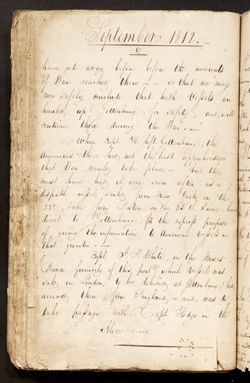 September 1812.
have got away before the accounts
of War reaches there — so that we may
very safely conclude that both Vessels are
hauled up Gottenburg for safety and will
continue there during the War. —
When Capt H left Gottenburg, the
Americans there had not the least apprehension
that War would take place — but they
must have had it very soon after, as a
dispatch vessel sailed from New York on the
direct to Gottenburg, for the express purpose
of giving the information to American Vessels in
that quarter —
Capt White, in the
formerly of this port, which Vessel was
sold in London, to be delivered at Gottenburg, had
arrived there from England, and was to
take passage with Capt in the